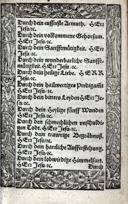 Durch dein eusserste Armuth. HErr
Jesu ꝛc.
Durch dein volkommenen Gehorsam.
HErr Jesu ꝛc.
Durch dein Sanfftmütigkeit. HErr
Jesu ꝛc.
Durch dein wunderbarliche Sanfft-
mütigkeit. HErr Jesu ꝛc.
Durch dein heilige Liebe. HERR
Jesu ꝛc.
Durch dein heilwertige Predigung
HErr Jesu ꝛc.
Durch dein bitters Leyden HErr Je-
su ꝛc.
Durch dein Heylige fünff Wunden
HErr Jesu ꝛc.
Durch dein schmechlichen unschuldi-
gen Todt. HErr Jesu ꝛc.
Durch dein traurige Begräbnuß.
HErr Jesu ꝛc.
Durch dein herrliche Aufferstehung.
HErr Jesu ꝛc.
Durch dein lobwirdige Himmelfart.
HErr Jesu ꝛc. Durch